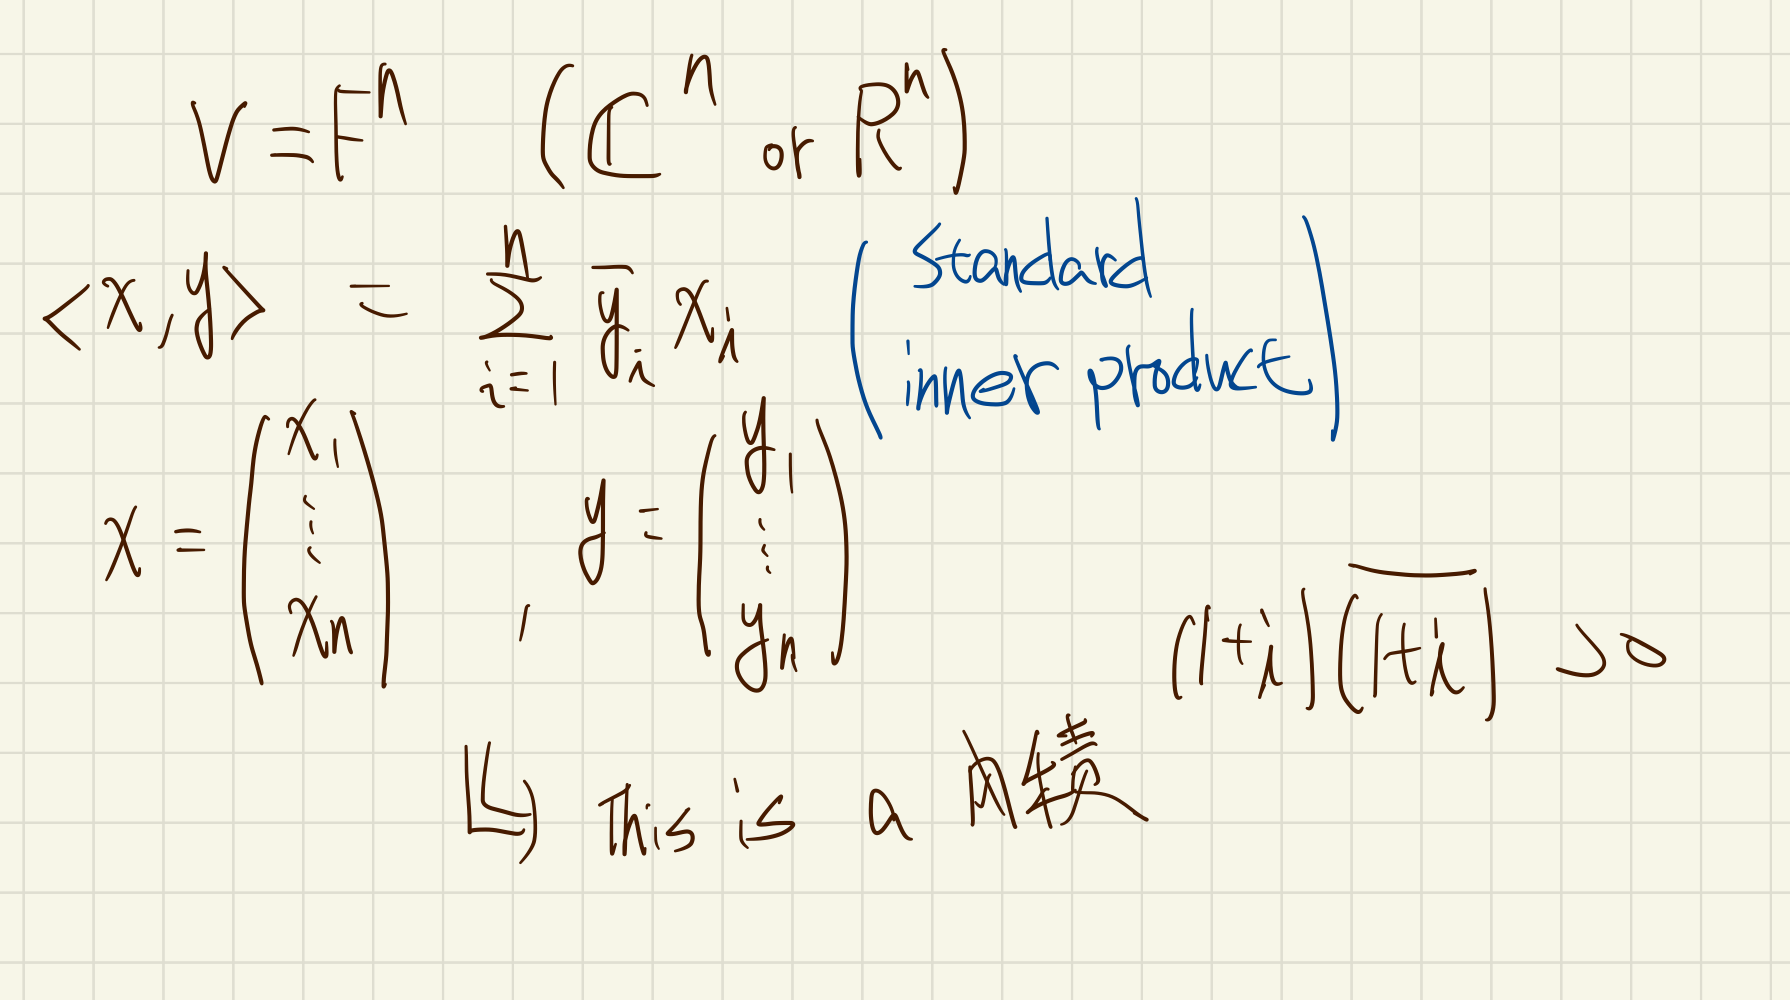 V = Fⁿ (ℂⁿ or Rⁿ)
<x, y> = ∑ⁿᵢ₌₁ ȳᵢ xᵢ (standard inner product)
x = (x₁ ⋮ xₙ) , y = (y₁ ⋮ yₙ)
(1+i)(1+i)̅ >0
↳ This is a 内積